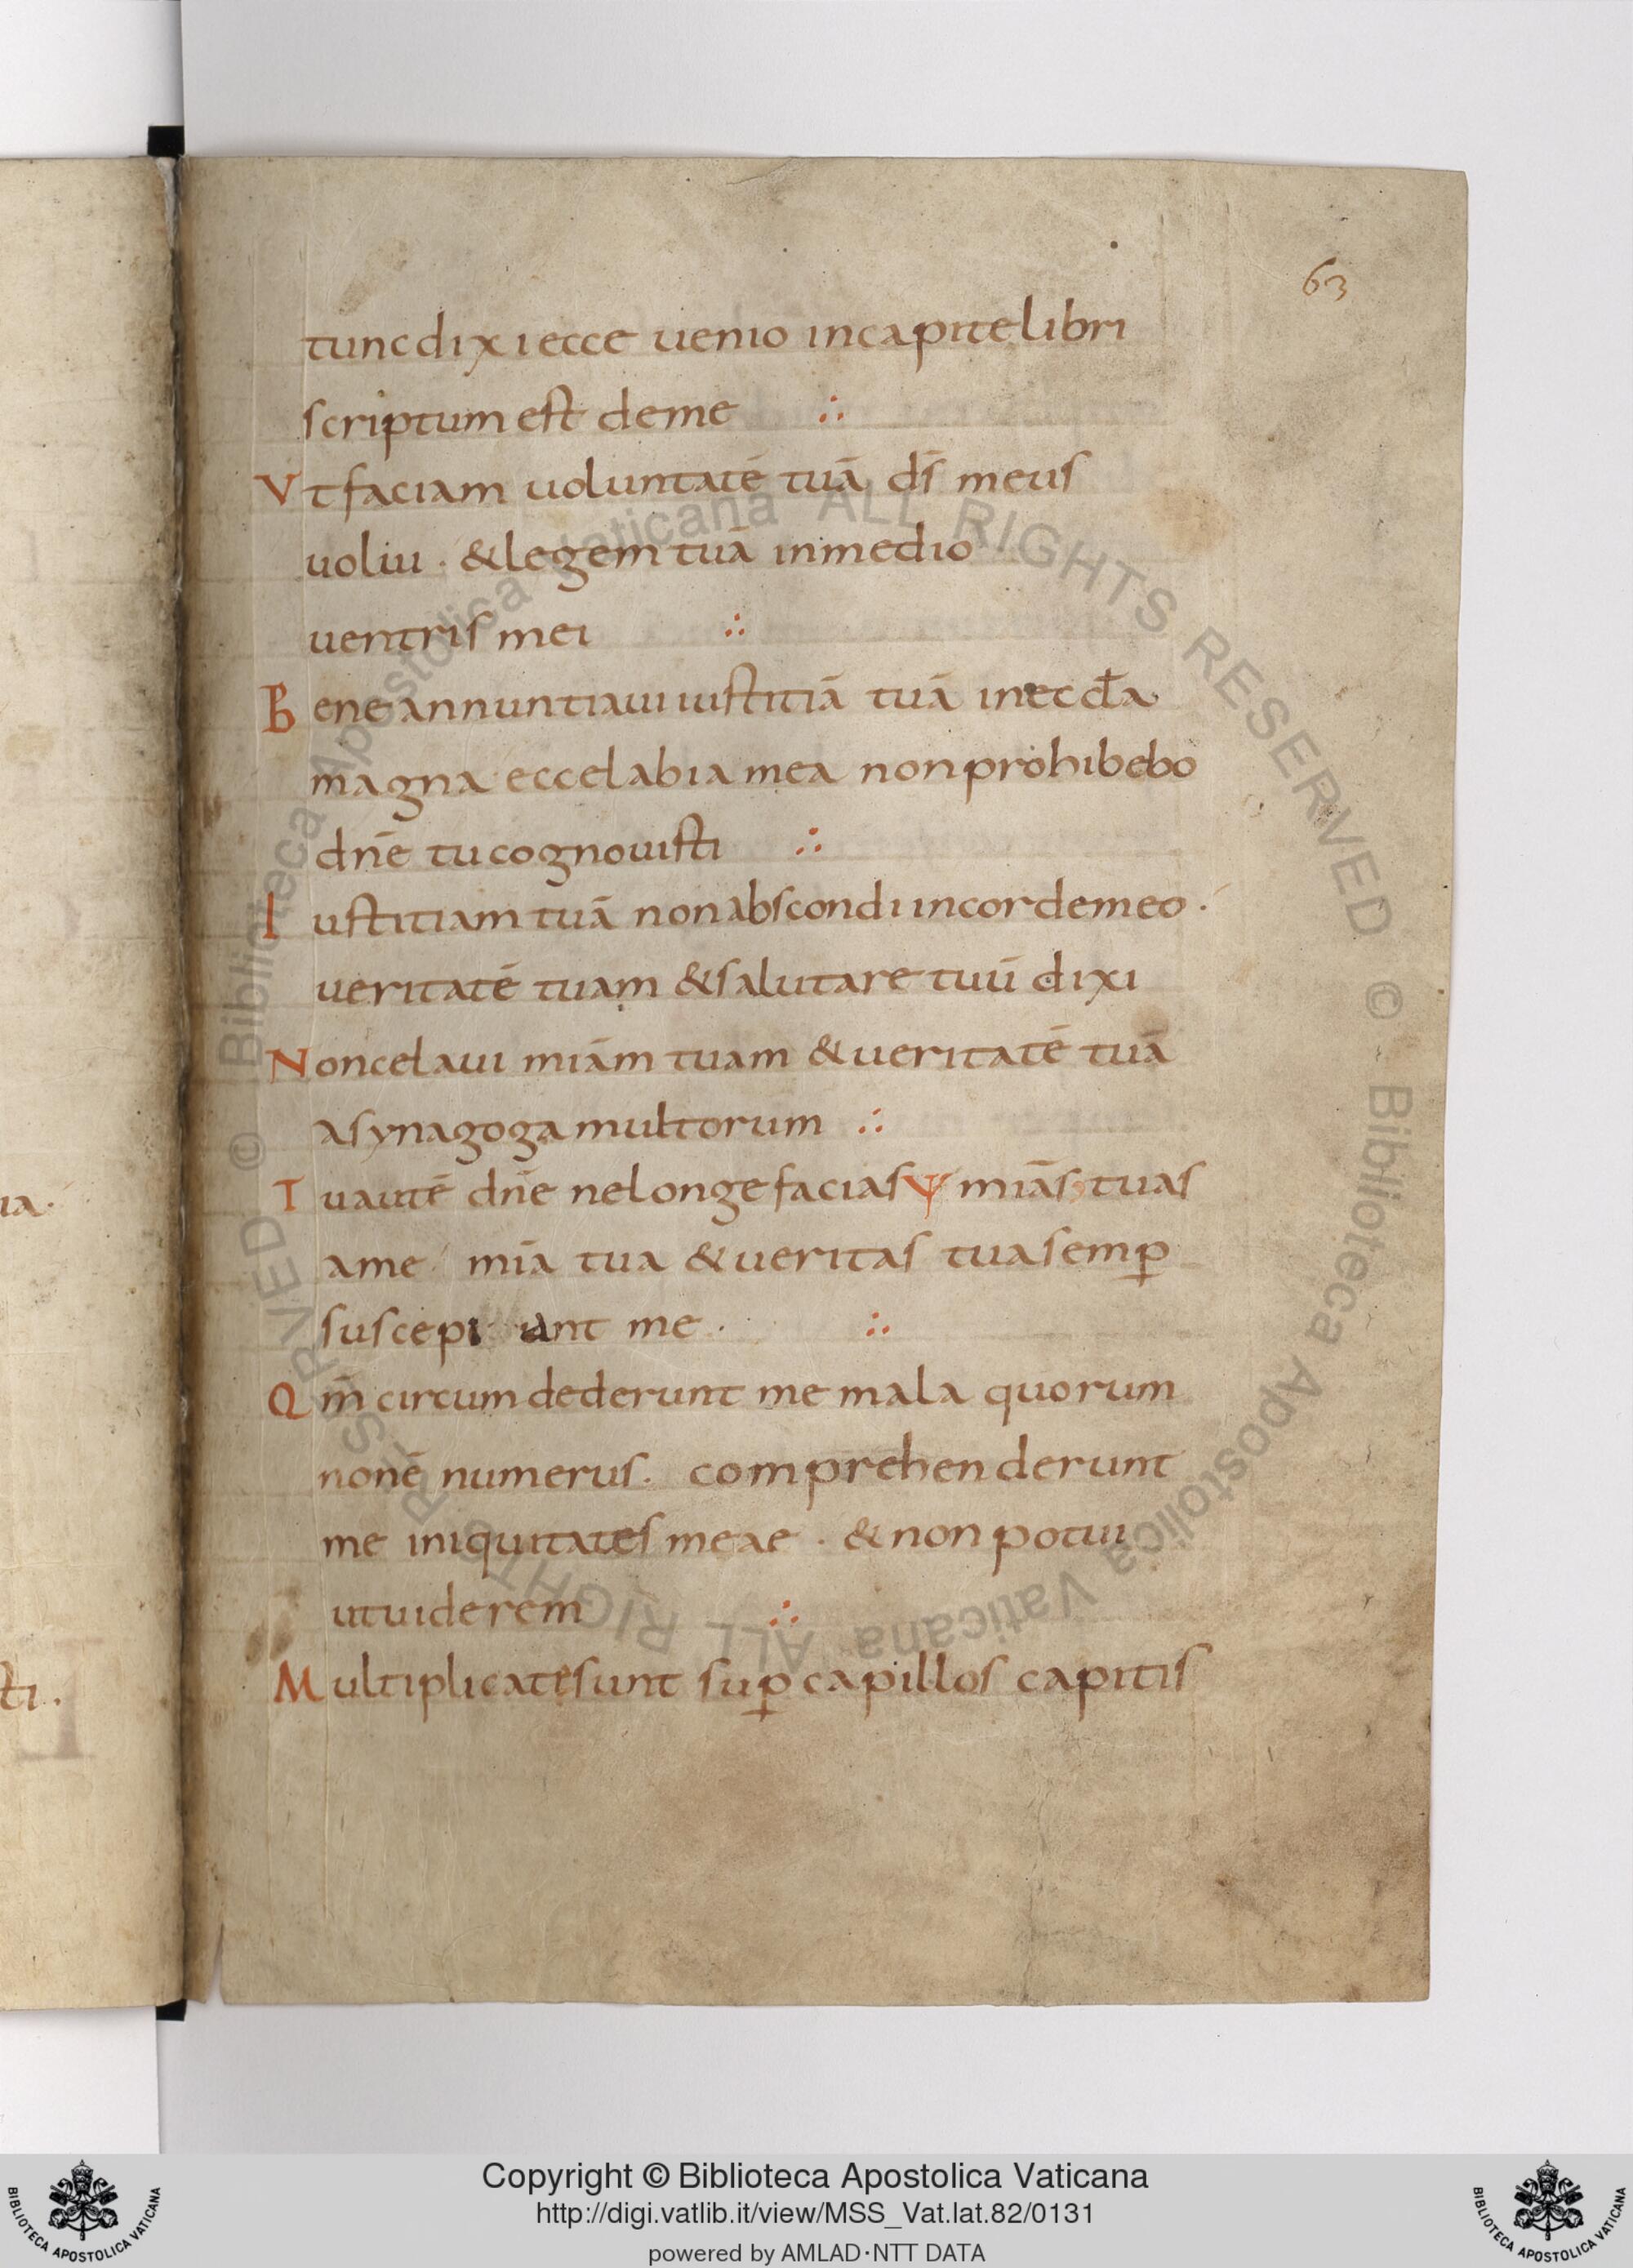 63
tuncdixi ecce uenio incapitelibri
scriptum est deme ∴
Vt faciam uoluntatē tuā ds̄ meus
uolui · &legem tuā inmedio
uentris mei ∴
Bene annuntiaui iustitiā tuā inęccl̄a
magna eccelabia mea nonprohibebo
dn̄e tucognouisti ∴
Iustitiam tuā nonabscondi incordemeo ·
ueritatē tuam &salutare tuū dixi
Noncelaui miām tuam &ueritatē tuā
asynagoga multorum ∴
Tuautē dn̄e nelonge facias miās tuas
ame · mīa tua &ueritas tuasemp̱
suscepi unt me · ∴
Qm̄ circumdederunt me mala quorum
nonē numerus · comprehenderunt
me iniquitates meae · &non potui
utuiderem ∴
Multiplicatęsunt sup̱ capillos capitis
ua ·
sti ·
© Biblioteca Apostolica Vaticana ALL RIGHTS RESERVED © - Biblioteca Apostolica Vaticana ALL RIGHTS RESERVED
Copyright © Biblioteca Apostolica Vaticana
http://digi.vatlib.it/view/MSS_Vat.lat.82/0131
powered by AMLAD·NTT DATA
BIBLIOTECA APOSTOLICA VATICANA
BIBLIOTECA APOSTOLICA VATICANA